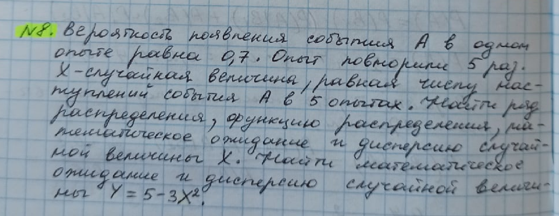 №8. Вероятность появления события А в одном
опыте равна 0,7. Опыт повторили 5 раз.
X-случайная величина, равная числу нас-
туплений события А в 5 опытах. Найти ряд
распределения, функцию распределения, ма-
тематическое ожидание и дисперсию случай-
ной величины X. Найти математическое
ожидание и дисперсию случайной величи-
ны Y = 5-3X².